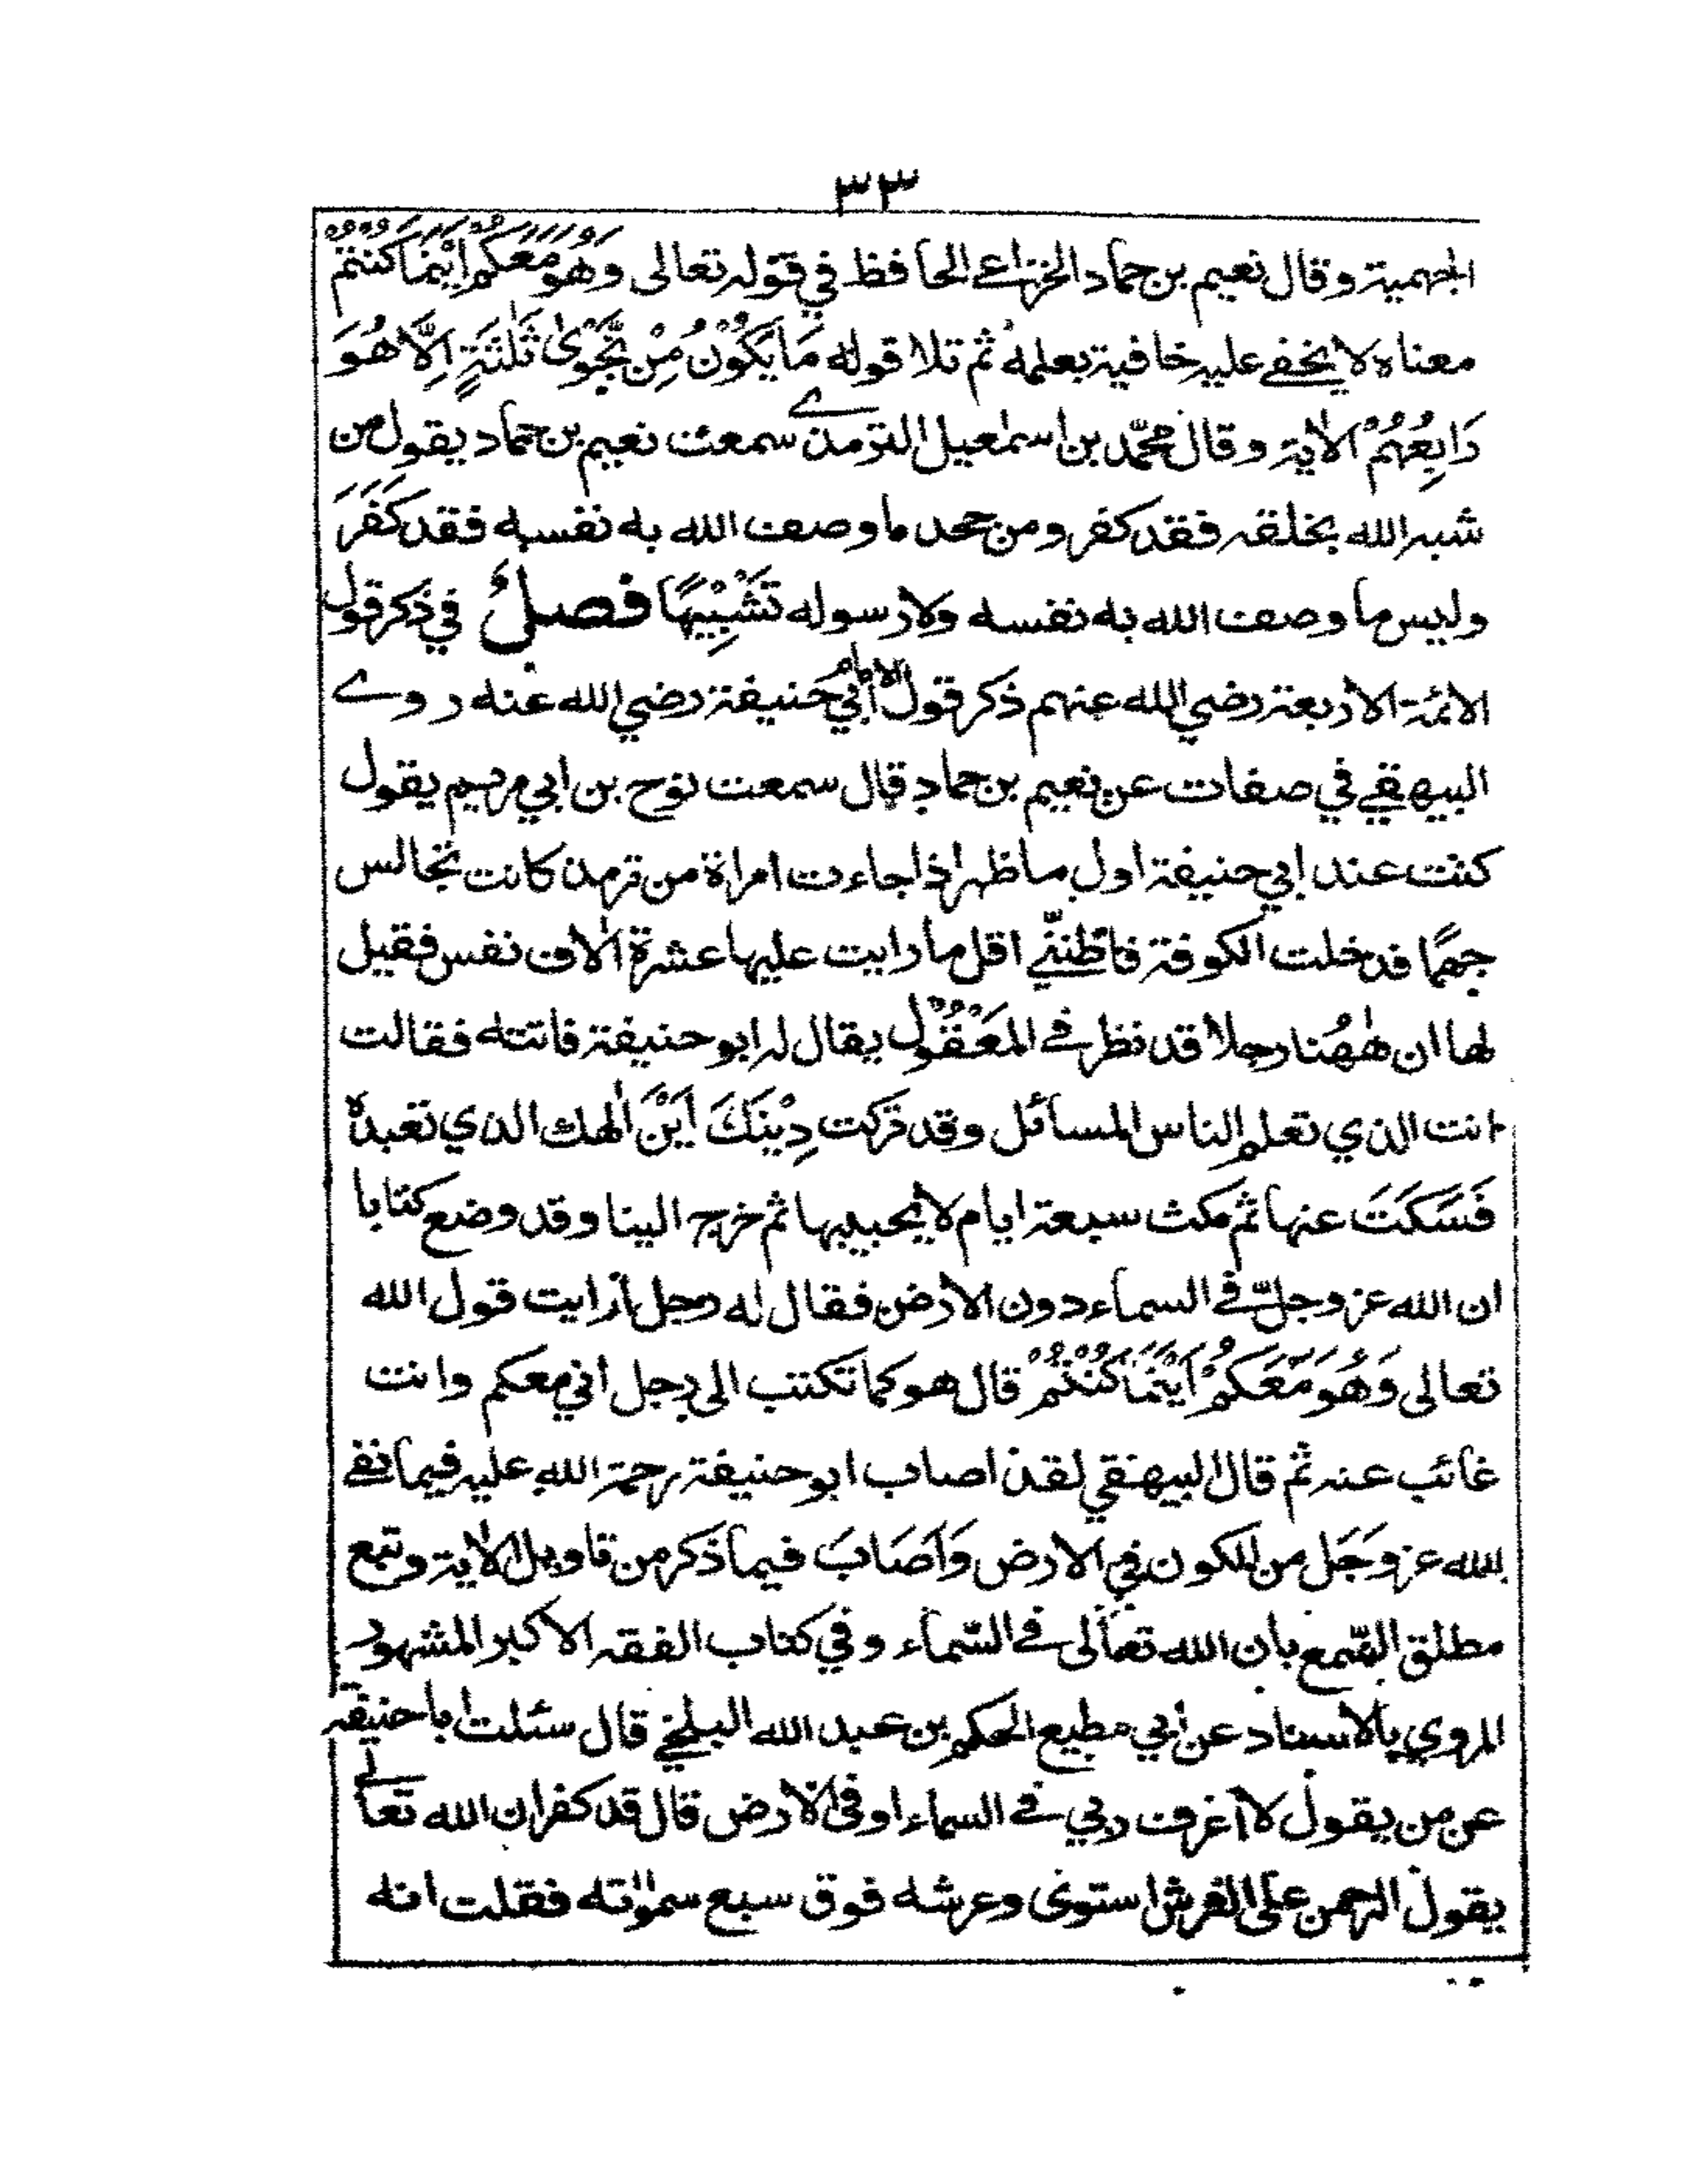 ٣٣
الجهمية وقال نعيم بن حماد الخزاعے الحافظ في قوله تعالى وَهُوَ مَعَكُمْ اَيْنَمَا كُنْتُمْ
معناه لا يخفے عليه خافية بعلمه ثم تلا قوله مَا يَكُوْنُ مِنْ نَّجْوٰى ثَلٰثَةٍ اِلَّا هُوَ
رَابِعُهُمْ الاٰية وقال محمّد بن اسمٰعيل الترمذے سمعت نعيم بن حماد يقول من
شبه الله بخلقه فقد كفر ومن جحد ما وصف الله به نفسه فقد كَفَرَ
وليس ما وصف الله به نفسه ولا رسوله تَشْبِيْهًا فصلٌ في ذكر قول
الائمة الاربعة رضي الله عنهم ذكر قول الامام أبي حَنيفة رضي الله عنه روے
البيهقے في صفات عن نعيم بن حماد قال سمعت نوح بن ابي مريم يقول
كنت عند ابي حنيفة اول ما ظهر اذا جاءت امراة من ترمذ كانت تجالس
جهمًا فدخلت الكوفة فاظننّے اقل ما رايت عليها عشرة اٰلاف نفس فقيل
لها ان هٰهُنا رجلا قد نظر فے المَعْقُوْل يقال له ابو حنيفة فاتته فقالت
انت الذي تعلم الناس المسائل وقد تركت دِيْنَكَ اَيْنَ اٰلهك الذي تعبده
فَسَكَتَ عنها ثم مكث سبعة ايام لا يجيبها ثم خرج الينا وقد وضع كتابا
ان الله عز وجلّ فے السماء دون الارض فقال له رجل أرايت قول الله
تعالى وَهُوَ مَعَكُمْ اَيْنَمَا كُنْتُمْ قال هو كما تكتب الى رجل أني معكم وانت
غائب عنه ثم قال البيهقي لقد اصاب ابو حنيفة رحمة الله عليه فيما نفے
لله عز وجَل من الكون في الارض وَاَصَابَ فيما ذكر من تاويل الاٰية وتبع
مطلق السّمع بان الله تعالى فے السّماء وفي كتاب الفقه الاكبر المشهور
المروي بالاسناد عن أبي مطيع الحكم بن عبد الله البلخي قال سئلت ابا حنيفة
عن من يقول لا أعرف ربي فے السماء او فى الارض قال قد كفر ان الله تعالے
يقول الرحمن على العرش استوى وعرشه فوق سبع سمٰوٰته فقلت انه